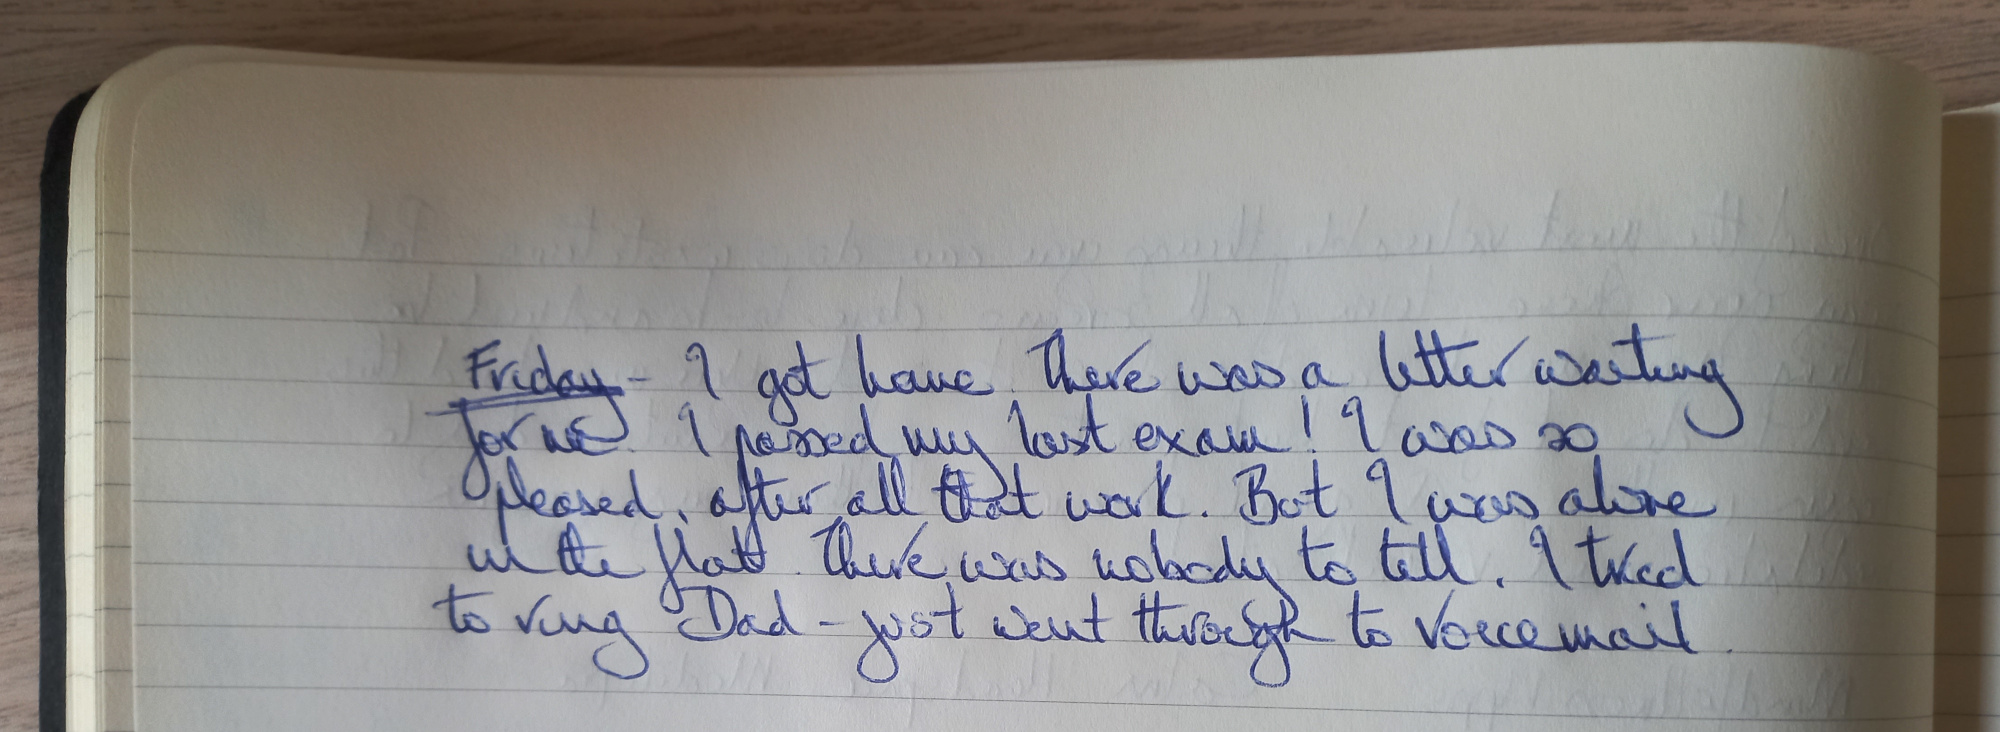 Friday - I got home. There was a letter waiting
for me. I passed my last exam! I was so
pleased, after all that work. But I was alone
in the flat. There was nobody to tell. I tried
to ring Dad - just went through to voicemail.